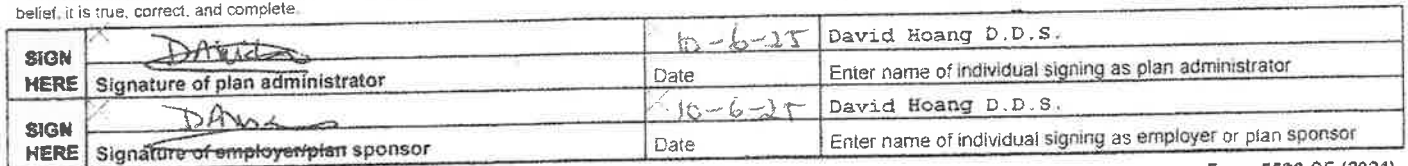 belief, it is true, correct, and complete.
SIGN HERE
David
10-6-25
David Hoang D.D.S.
Signature of plan administrator
Date
Enter name of individual signing as plan administrator
SIGN HERE
10-6-25
David Hoang D.D.S.
Signature of employer/plan sponsor
Date
Enter name of individual signing as employer or plan sponsor